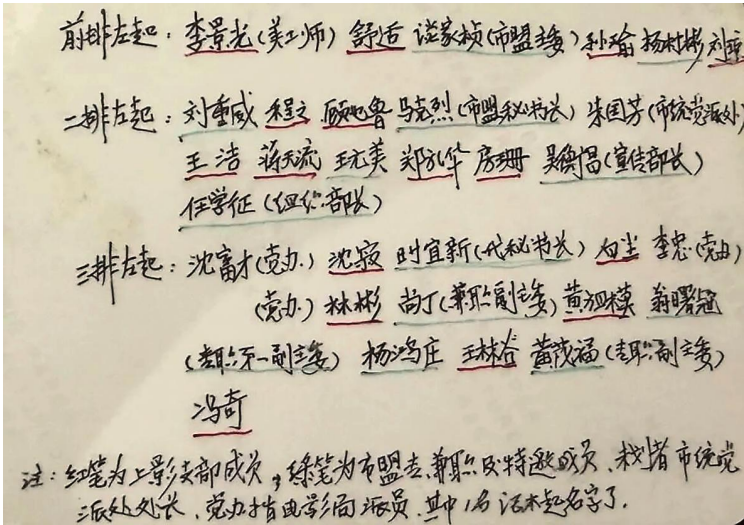 前排左起：李景光(美工师) 舒适 谈家桢(市盟主委) 孙瑜 杨村彬 刘琼
二排左起：刘重威 程之 顾也鲁 马克烈(市盟秘书长) 朱国芳(市统党派处)
王洁 蒋天流 王元美 郑孔华 房珊 吴衡昌(宣传部长)
任学征(组织部长)
三排左起：沈富才(党办) 沈寂 时宜新(代秘书长) 白尘 李忠(党办)
(党办) 林彬 尚丁(兼职副主委) 黄祖模 翁曙冠
(专职第一副主委) 杨鸿庄 王林谷 黄茂福(专职副主委)
冯奇
注：红笔为上影支部成员，绿笔为市盟专、兼职及特邀成员、 市统党
派处处长，党办 由影局派员，其中1名记不起名字了．